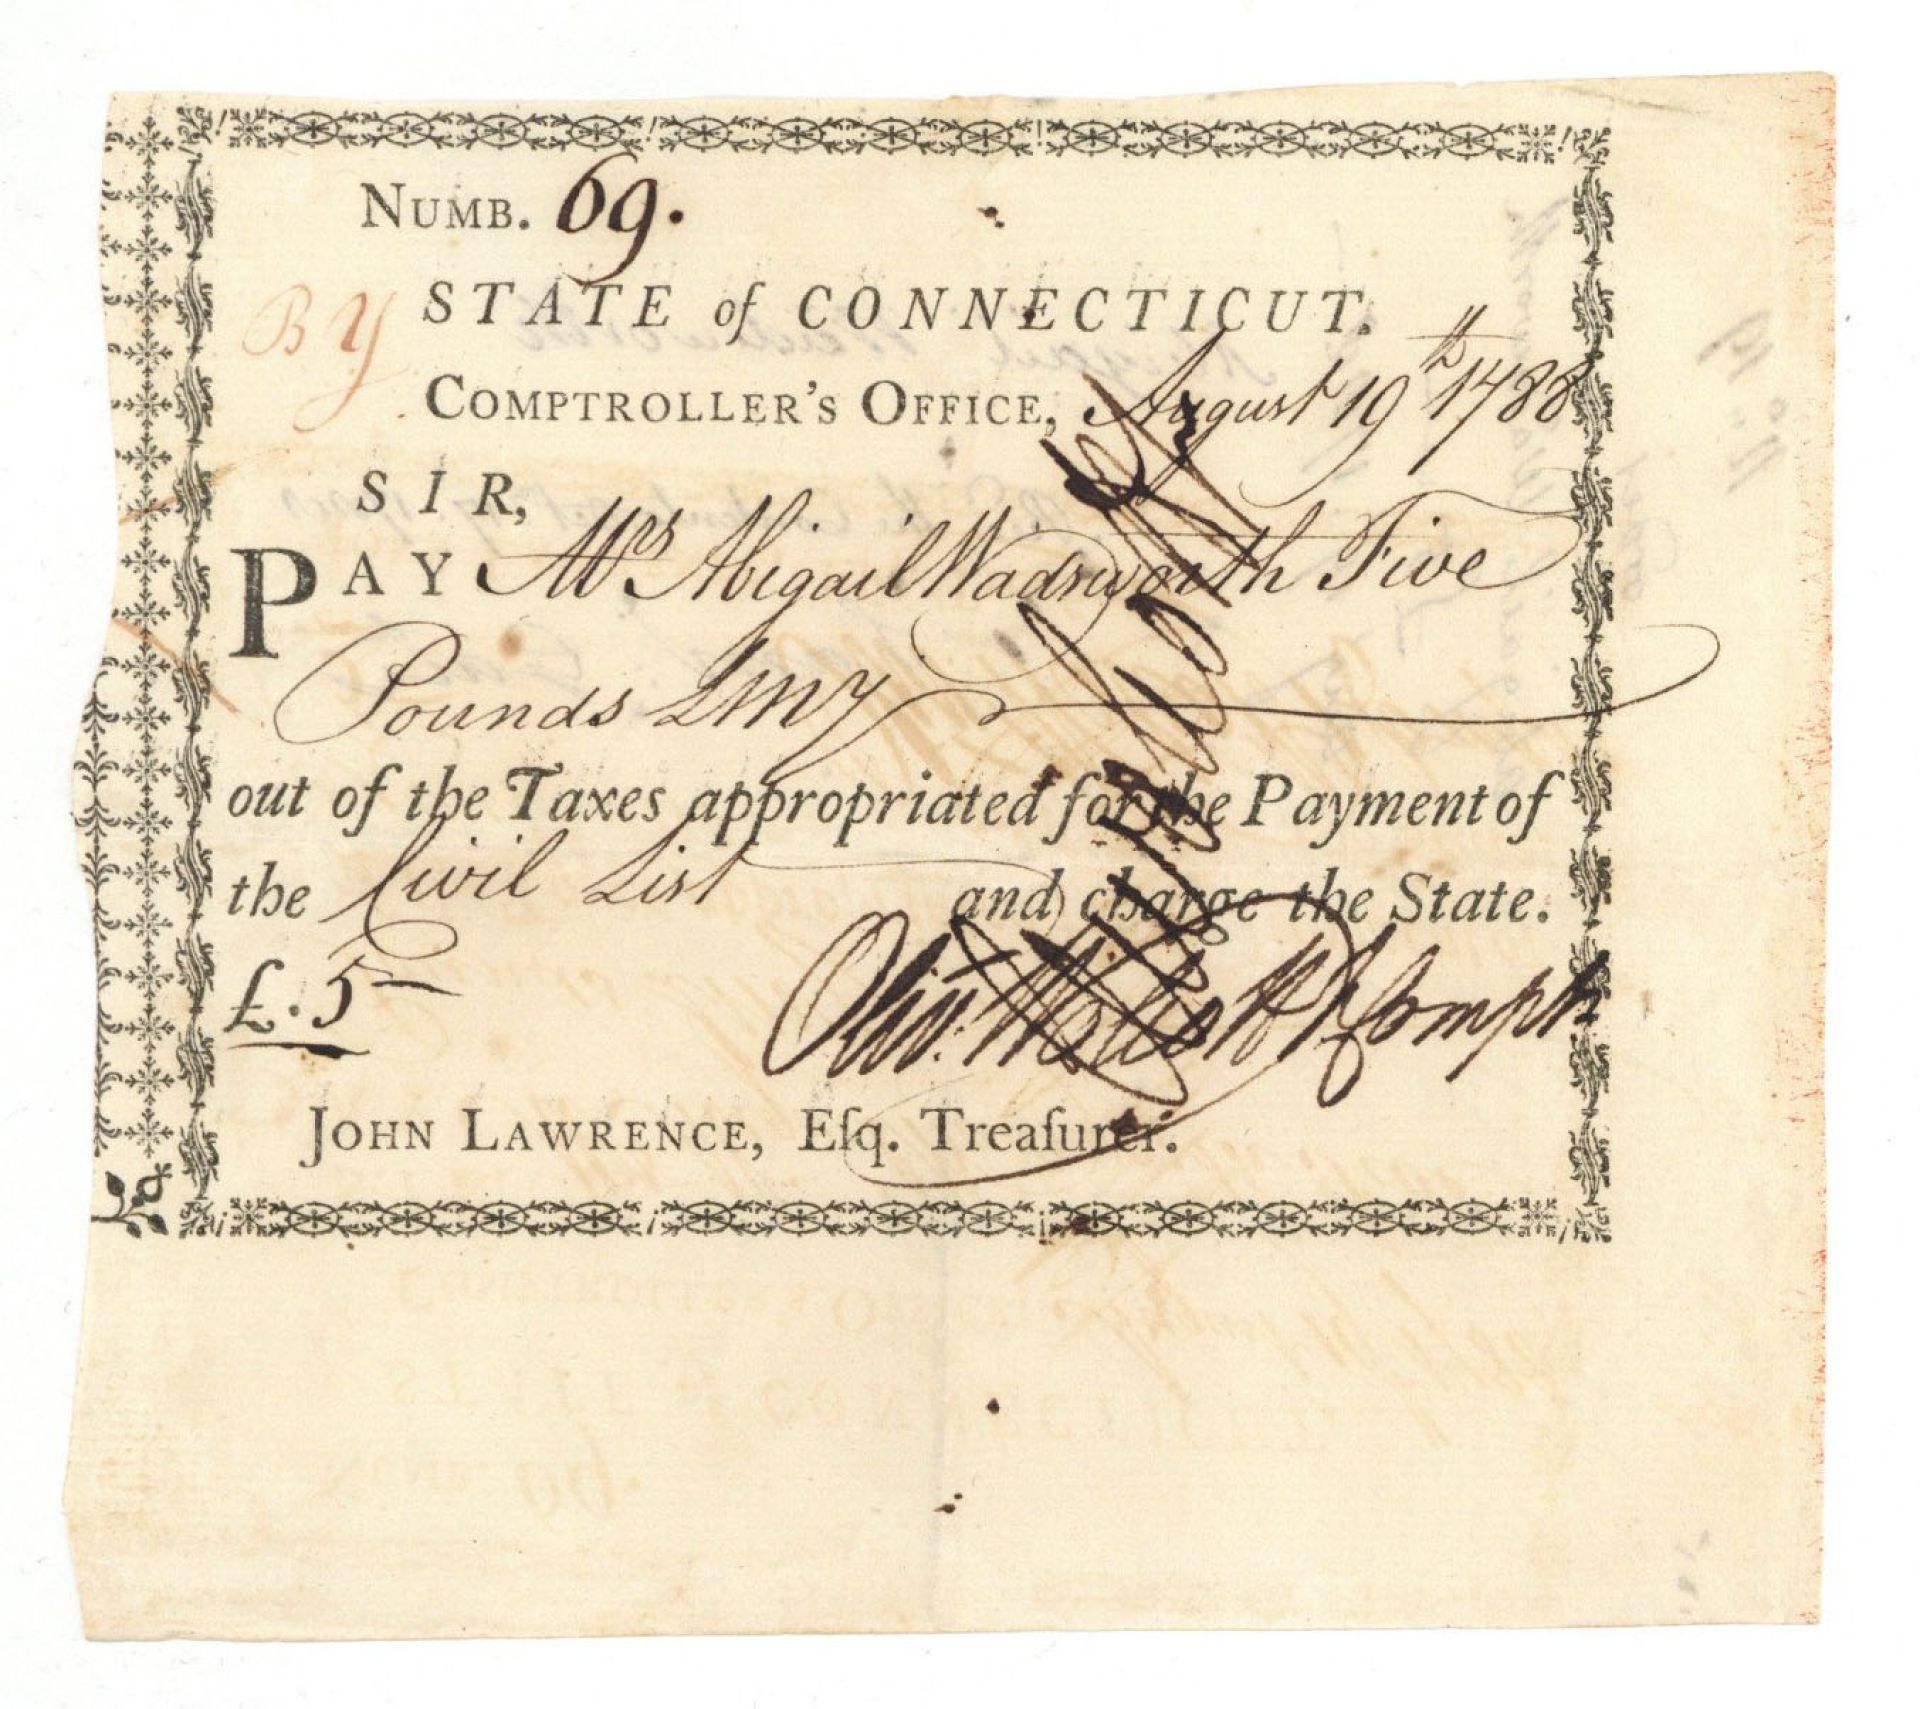 NUMB. 69.
STATE of CONNECTICUT.
B Y
COMPTROLLER'S OFFICE, August 19th 1788
SIR,
PAY Mrs Abigail Wadsworth Five
Pounds LMy
out of the Taxes appropriated for the Payment of
the Civil List and charge the State.
£. 5
Olivr. Wolcott Jr Compt
JOHN LAWRENCE, Eſq. Treaſurer.